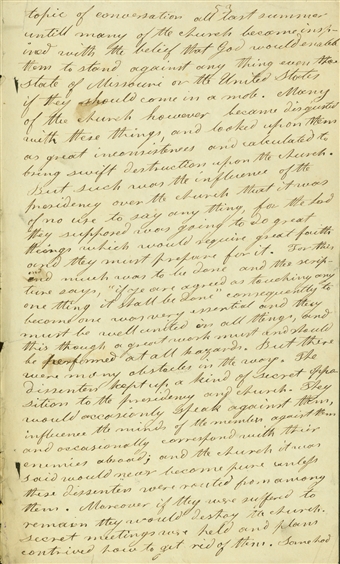 topic of conversation all last summer
untill many of the church became insp-
ired with the belief that God would enable
them to stand against any thing even the
State of Missouri or the United States
if they should come in a mob. Many
of the church however became disgusted
with these things, and looked upon them
as great inconsistences and calculated to
bring swift destruction upon the church.
But such was the influence of the
presidency over the church that it was
of no use to say any thing, for the Lord
they supposed was going to do great
things which would require great faith
and they must prepare for it. Farther
and much was to be done and the scrip-
ture says, "if ye are agreed as touching any
one thing it shall be done" consequently to
become one was very essential and they
must be well united in all things, and
this though a great work must and should
be performed at all hazards. But there
were many obstacles in the way. The
dissenters kept up a kind of secret oppo
sition to the presidency and church. They
would occasionly speak against them,
influence the minds of the members against them
and occasionally correspond with their
enemies abroad; and the church it was
said would never become pure unless
these dissenters were routed from among
them. Moreover if they were suffered to
remain they would destroy the church.
secret meetings were held and plans
contrived how to get rid of them. Some had